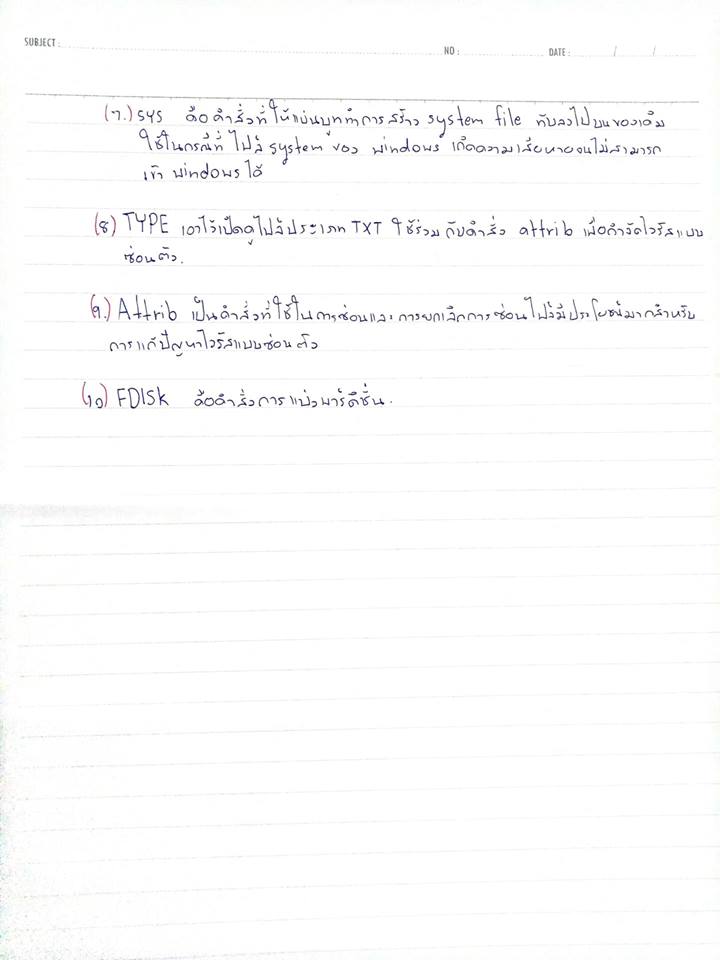 SUBJECT :
NO :
DATE : / /
(7.) SYS คือคำสั่งที่ให้แผ่นบูททำการสร้าง system file ทับลงไปบนของเดิม
ใช้ในกรณีที่ไฟล์ system ของ windows เกิดความเสียหายจนไม่สามารถ
เข้า windows ได้
(8) TYPE เอาไว้เปิดดูไฟล์ประเภท TXT ใช้ร่วมกับคำสั่ง attrib เพื่อกำจัดไวรัสแบบ
ซ่อนตัว.
(9.) Attrib เป็นคำสั่งที่ใช้ในการซ่อนและการยกเลิกการซ่อนไฟล์มีประโยชน์มากสำหรับ
การแก้ปัญหาไวรัสแบบซ่อนตัว
(10) FDISK คือคำสั่งการแบ่งพาร์ติชั่น.